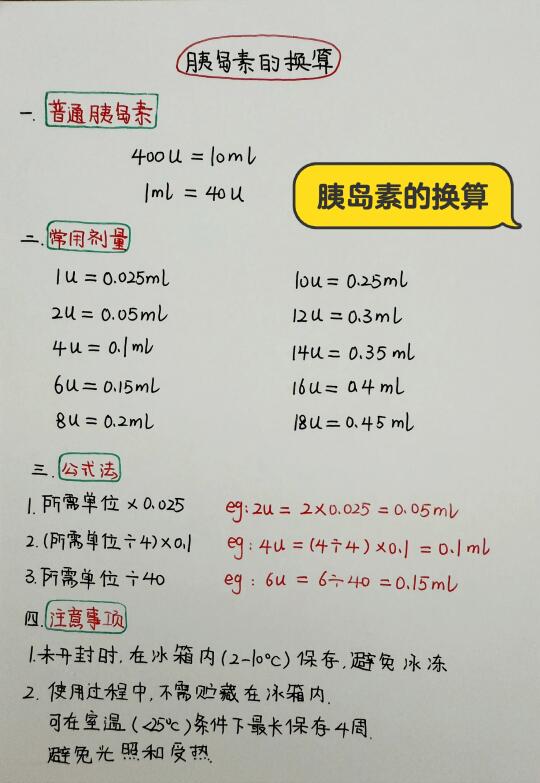 胰岛素的换算
一. 普通胰岛素
400U = 10ml
1ml = 40U
胰岛素的换算
二. 常用剂量
1U = 0.025ml
2U = 0.05ml
4U = 0.1ml
6U = 0.15ml
8U = 0.2ml
10U = 0.25ml
12U = 0.3ml
14U = 0.35ml
16U = 0.4ml
18U = 0.45ml
三. 公式法
1. 所需单位 × 0.025 eg: 2U = 2×0.025 = 0.05ml
2. (所需单位÷4)×0.1 eg: 4U = (4÷4)×0.1 = 0.1ml
3. 所需单位÷40 eg: 6U = 6÷40 = 0.15ml
四. 注意事项
1. 未开封时, 在冰箱内(2-10℃)保存, 避免冰冻
2. 使用过程中, 不需贮藏在冰箱内.
可在室温(<25℃)条件下最长保存4周.
避免光照和受热.